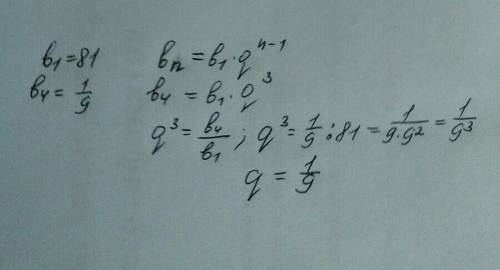 в₁=81 вₙ=в₁·q^(n-1)
в₄=1/9 в₄=в₁·q³
q³=в₄/в₁; q³=1/9:81=1/(9·9²)=1/9³
q=1/9